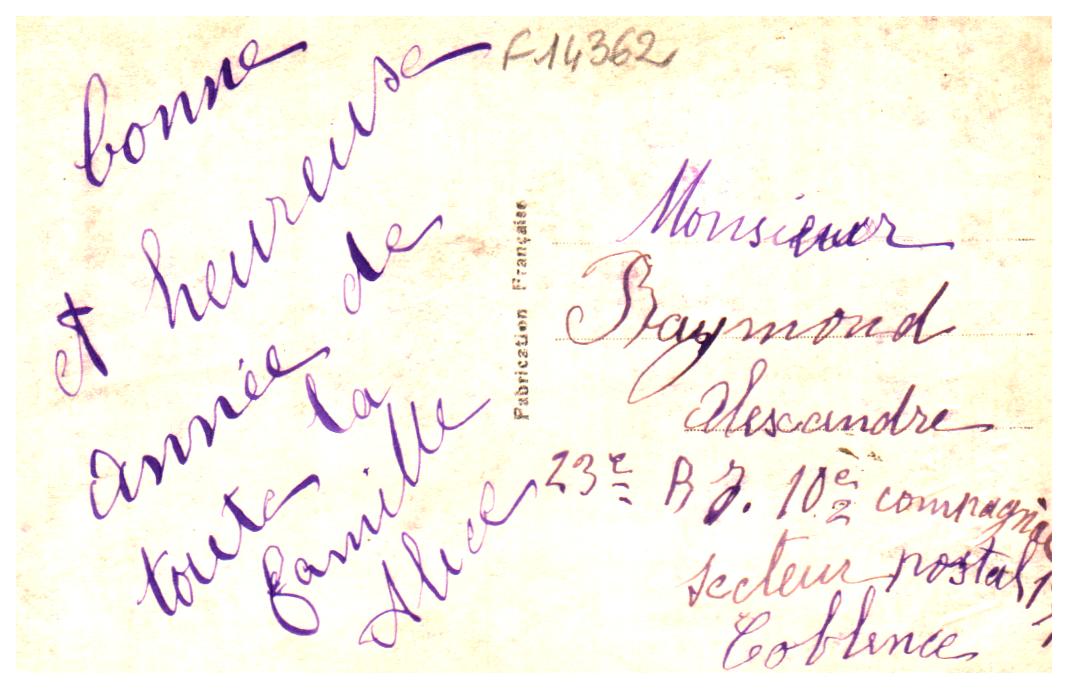 F14362
bonne
et heureuse
année de
toute la
famille
Alice
Fabrication Française
Monsieur
Raymond
Alexandre
23e R I. 10e compagnie
secteur postal
Coblence